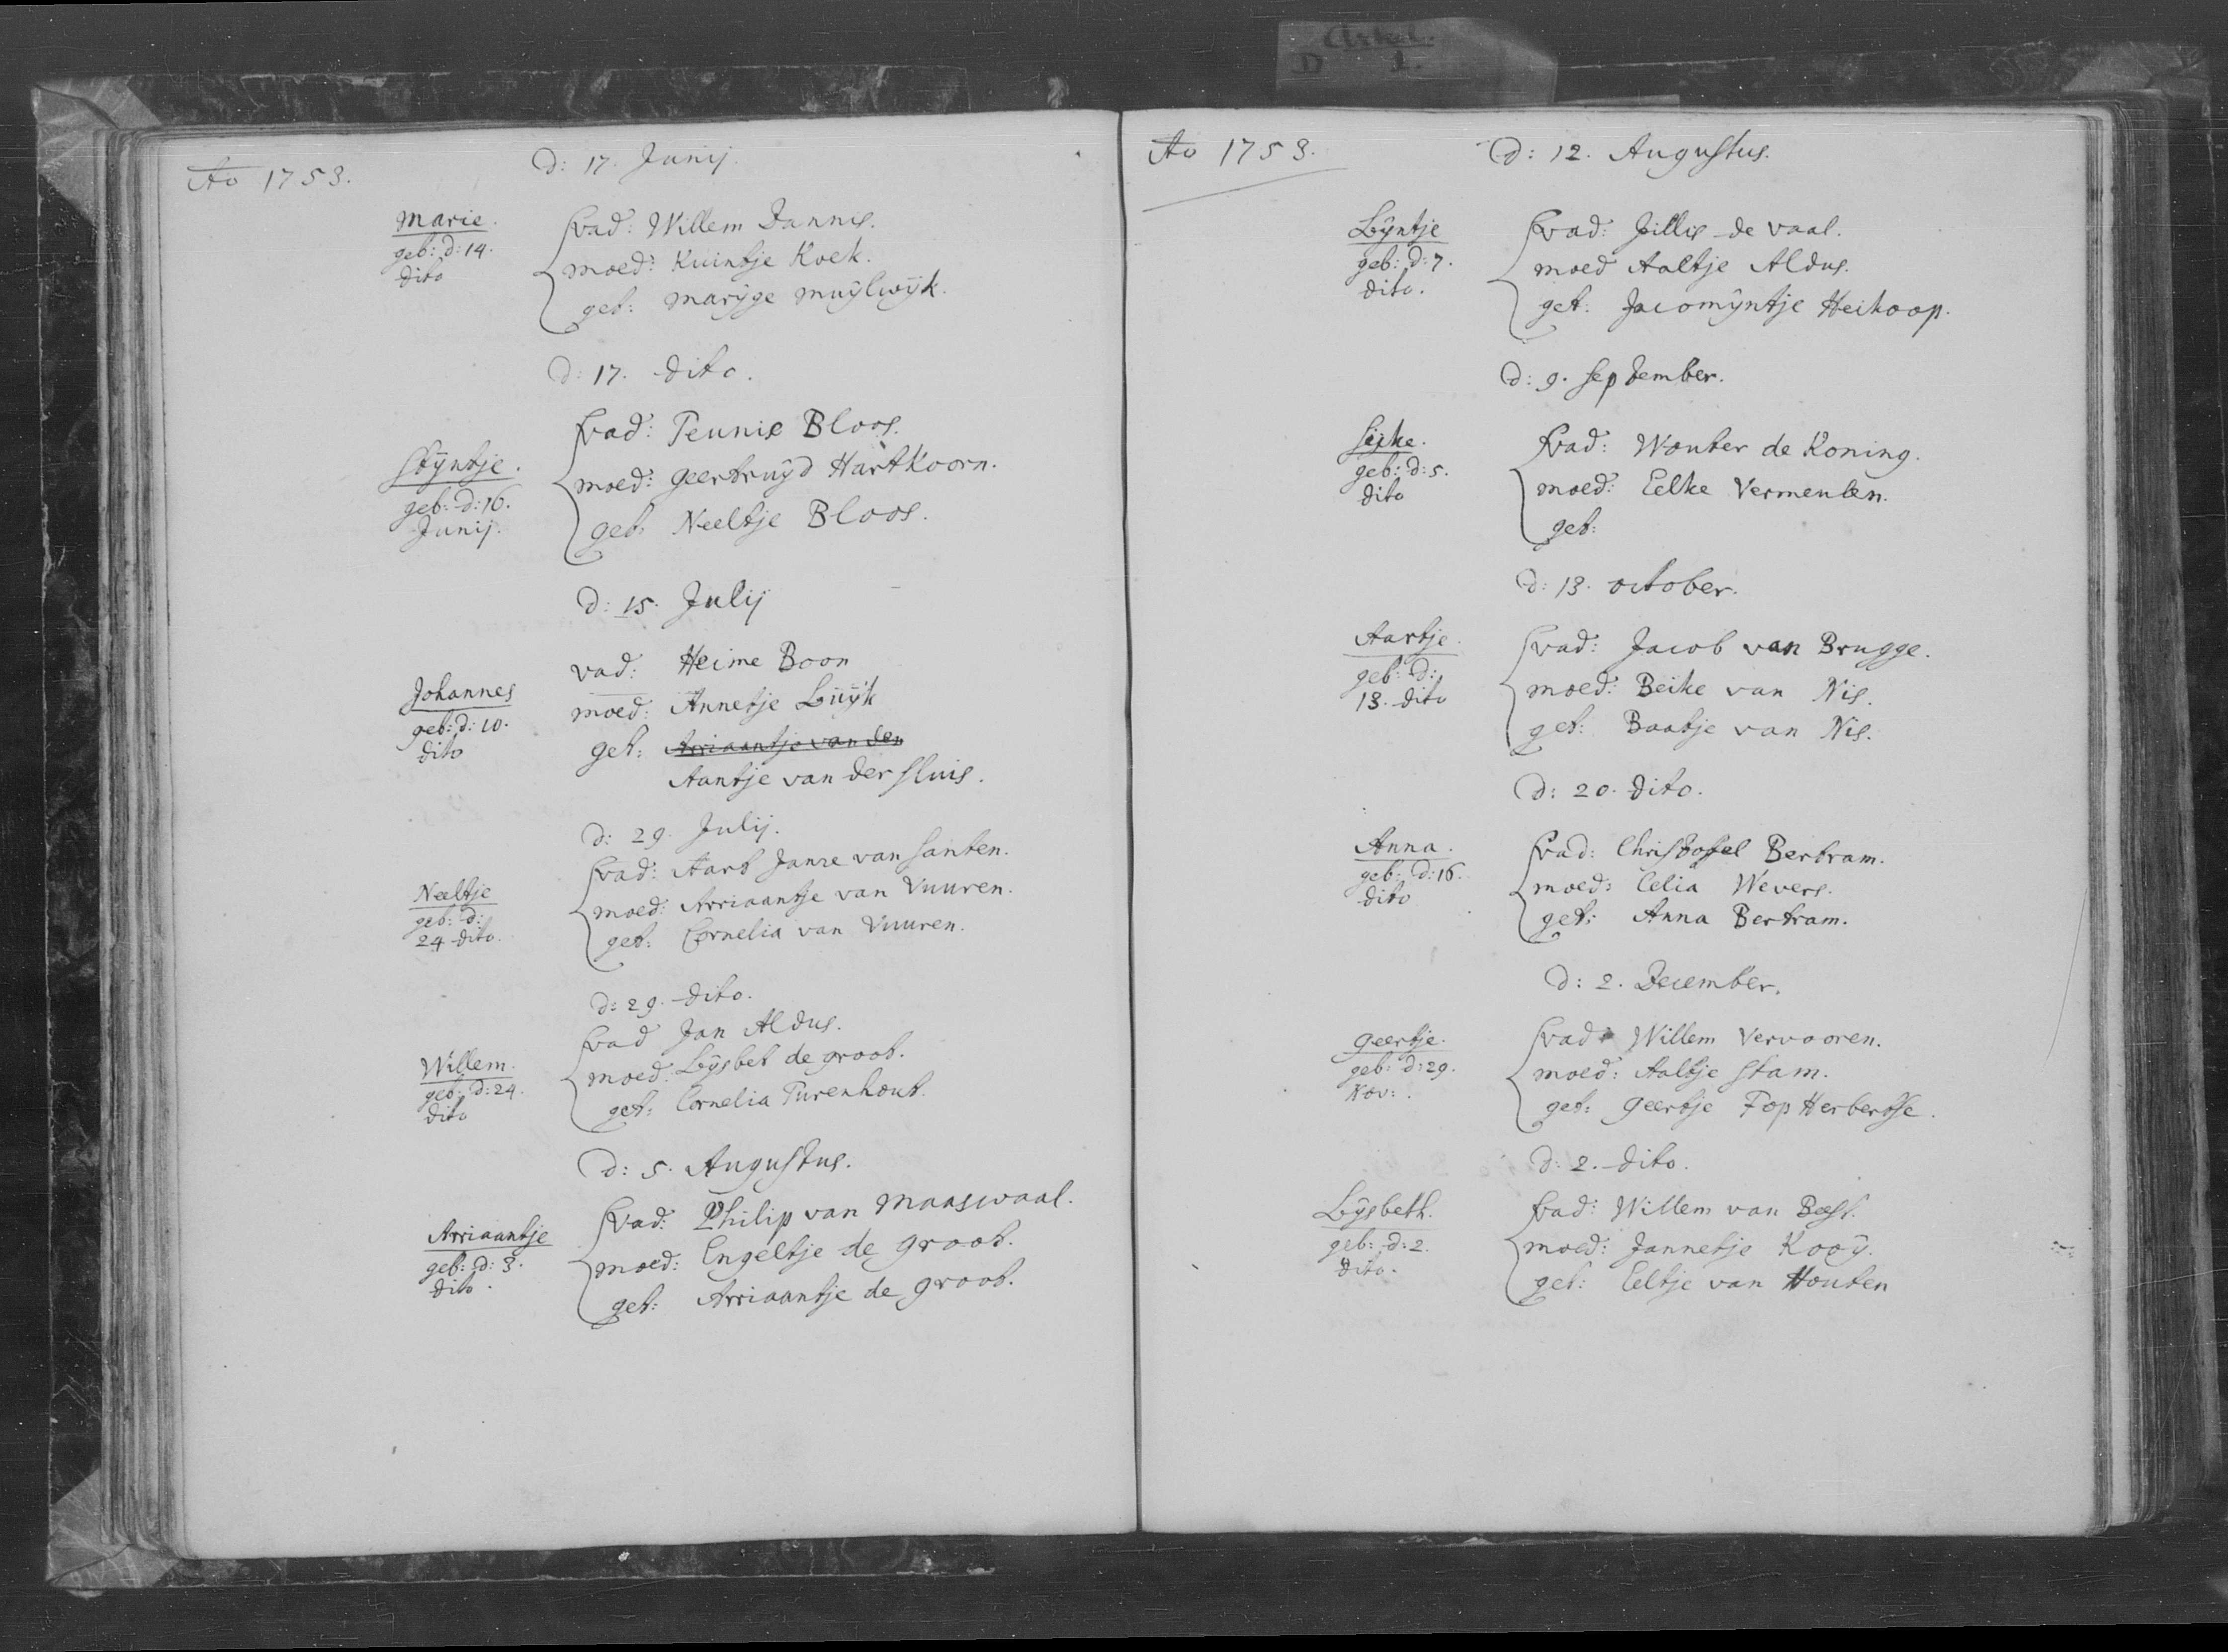 Arkel.
D 1.
Ao 1753.
d: 17. Junij.
Marie.
geb: d: 14.
dito
vad: Willem Dannis.
moed: Kuintje Koek.
get: Marijge Muijlwijk.
d: 17. dito.
Stijntje.
geb: d: 16.
Junij.
vad: Teunis Bloos.
moed: geertruijd HartKoorn.
get: Neeltje Bloos.
d: 15. Julij
Johannes
geb: d: 10.
dito
vad: Heime Boon
moed: Annetje Luijk
get: Arriaantje van den
Aantje van der sluis.
d: 29. Julij.
Neeltje
geb: d:
24 dito.
vad: Aart Janse van santen.
moed: Arriaantje van Vuuren.
get: Cornelia van Vuuren.
d: 29. dito.
Willem.
geb: d: 24.
dito
vad Jan Aldus.
moed: Lijsbet de groot.
get: Cornelia Turenhout.
d: 5. Augustus.
Arriaantje
geb: d: 3.
dito.
vad: Philip van Maaswaal.
moed: Engeltje de groot.
get: Arriaantje de groot.
Ao 1753.
d: 12. Augustus.
Lijntje
geb: d: 7.
dito.
vad: Jillis de vaal.
moed Aaltje Aldus.
get: Jacomijntje Heikoop.
d: 9. september.
sijke.
geb: d: 5.
dito
vad: Wouter de Koning.
moed: Eelke Vermeulen.
get:
d: 13. october.
Aartje.
geb: d:
13. dito
vad: Jacob van Brugge.
moed: Beike van Nis.
get: Baatje van Nis.
d: 20. dito.
Anna.
geb: d: 16.
dito
vad: Christofel Bertram.
moed: Celia Wevers.
get: Anna Bertram.
d: 2. December.
geertje.
geb: d: 29.
Nov:.
vad: Willem Vervooren.
moed: Aaltje stam.
get: geertje Fop Herbertse.
d: 2. dito.
Lijsbeth.
geb: d: 2.
dito.
vad: Willem van Beest.
moed: Jannetje Kooij.
get: Eeltje van Houten